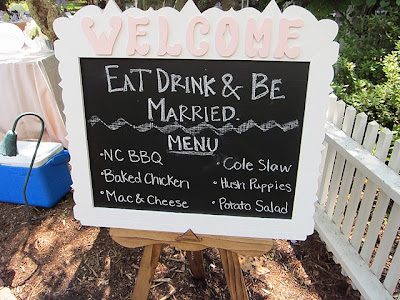 WELCOME
EAT DRINK & BE
MARRIED.
MENU
•NC BBQ
•Baked Chicken
•Mac & Cheese
•Cole Slaw
•Hush Puppies
•Potato Salad